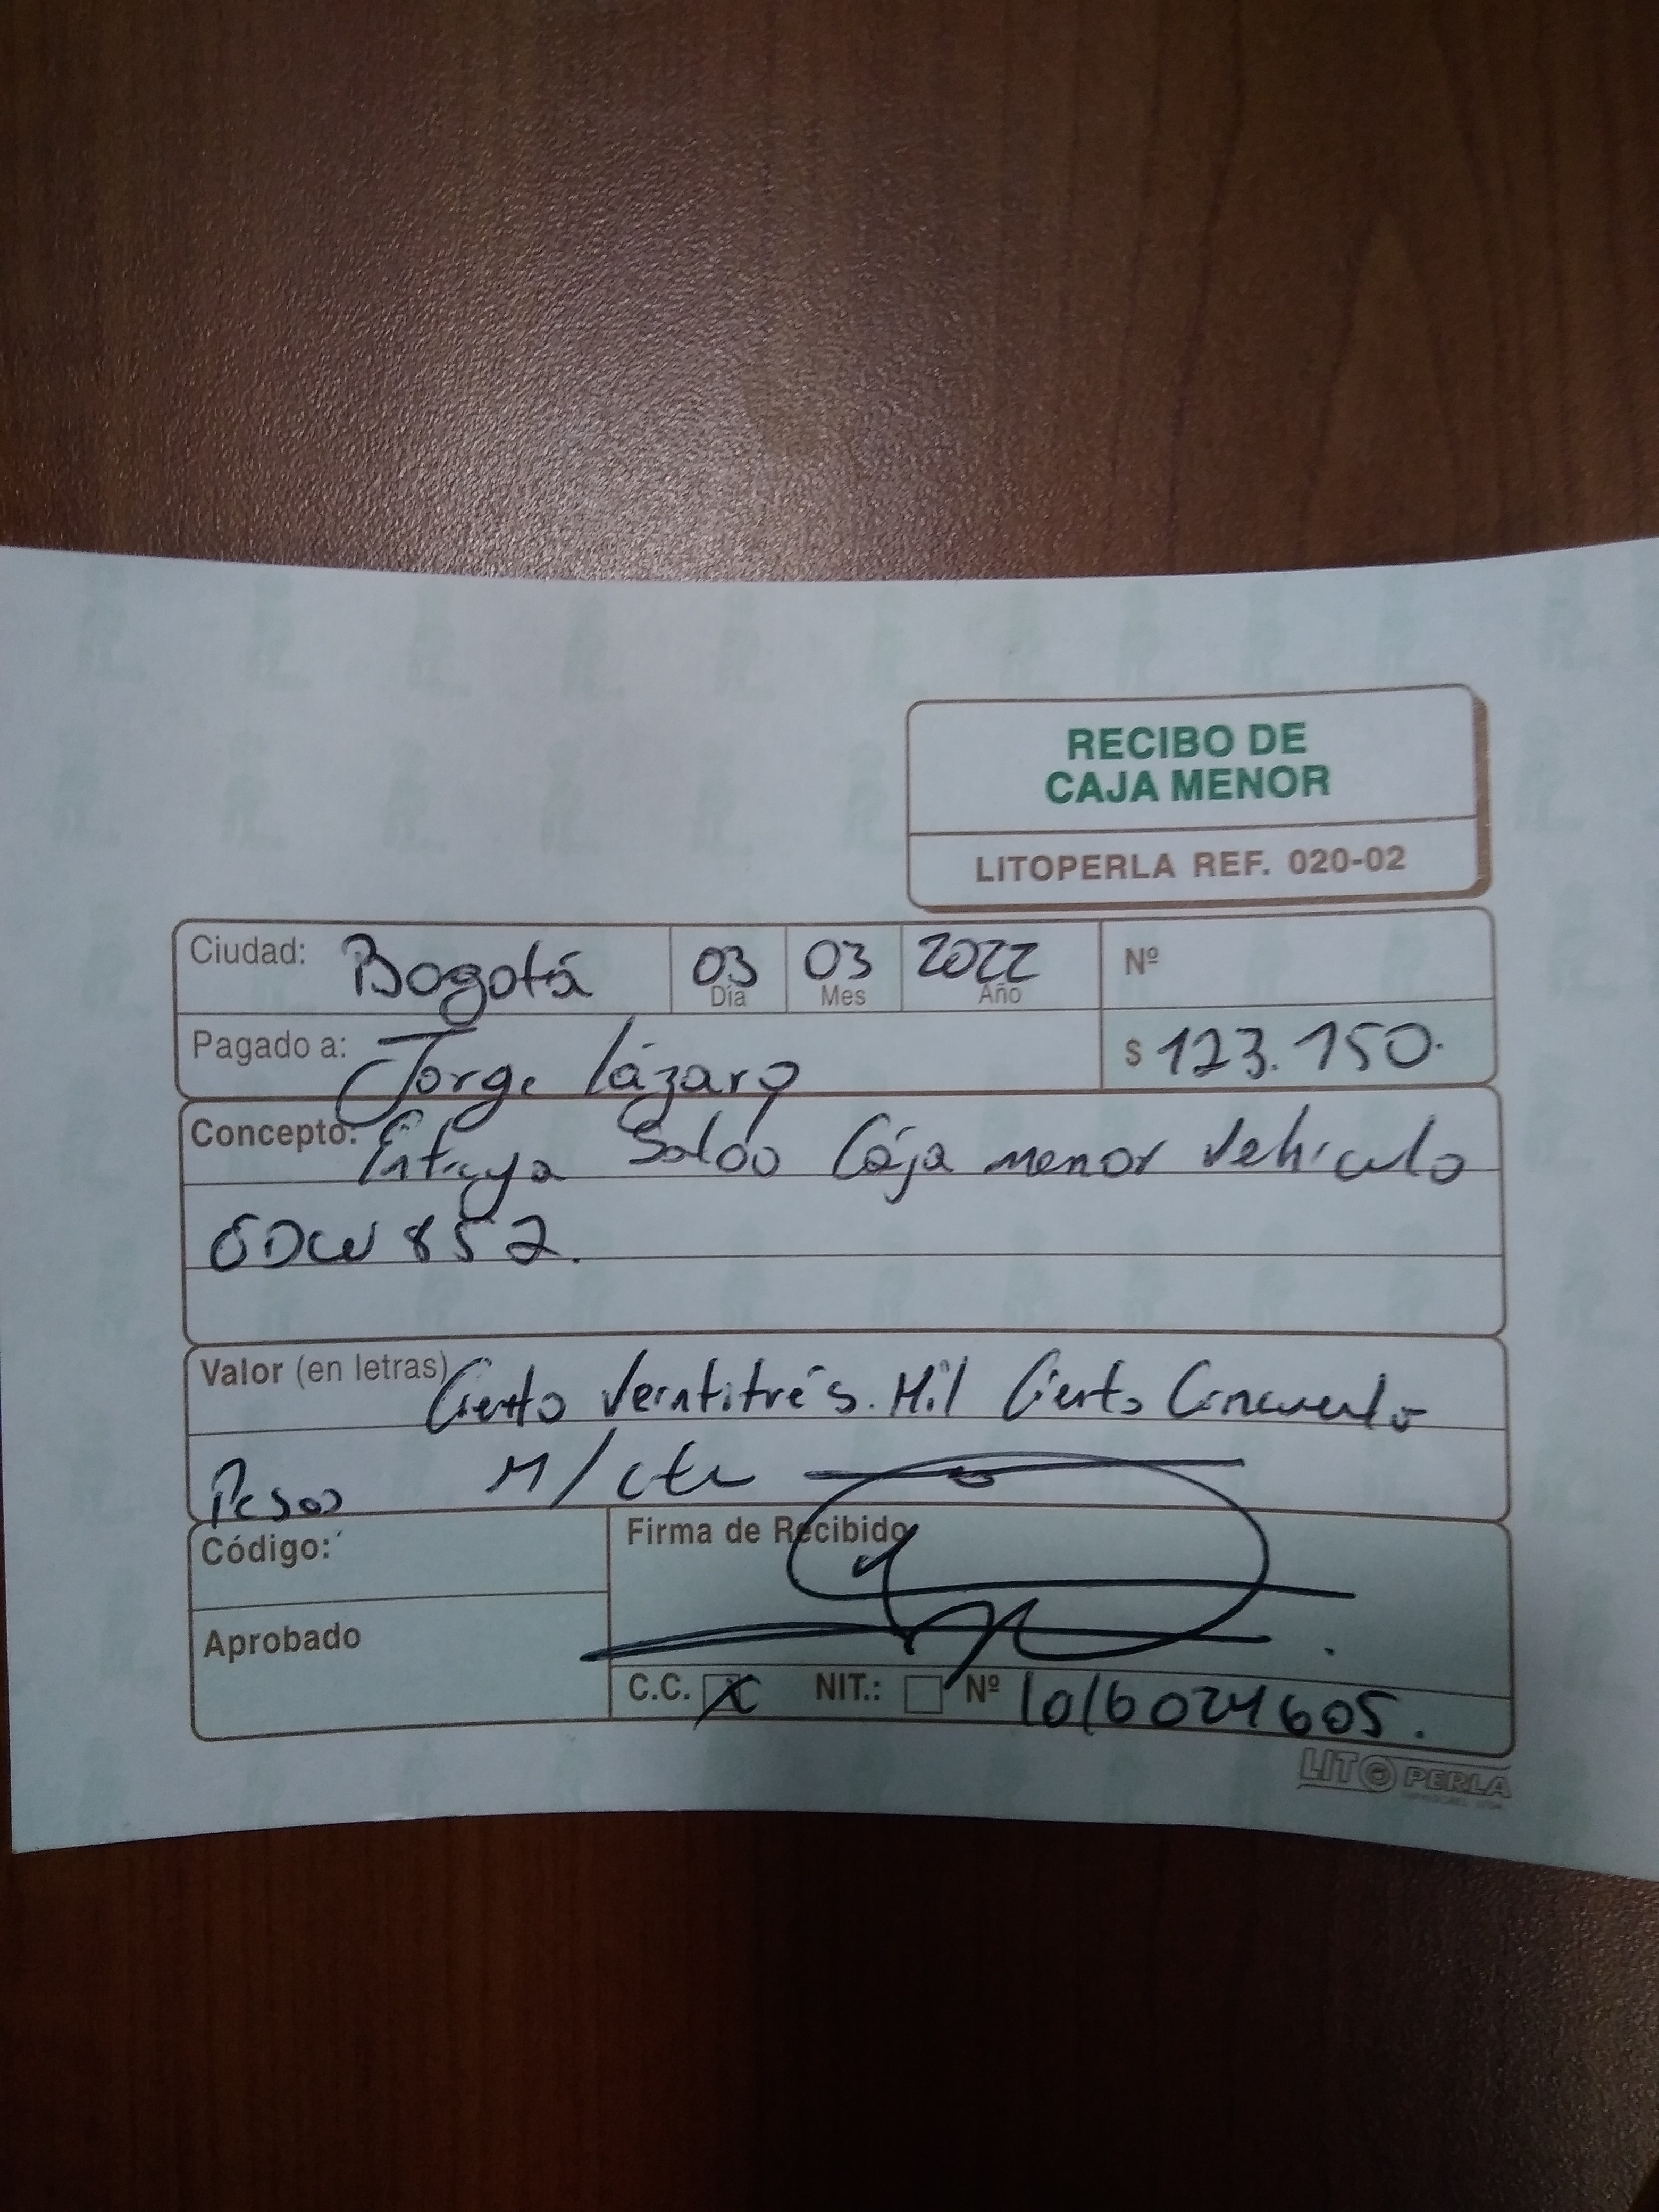 RECIBO DE
CAJA MENOR
LITOPERLA REF. 020-02
Ciudad: Bogotá 03 03 2022 Nº
Día Mes Año
Pagado a: Jorge Lázaro $ 123.150.
Concepto: Entrega Saldo Caja menor vehículo
852.
Valor (en letras) Ciento Veintitrés Mil Ciento Cincuenta
Pesos M/cte
Código: Firma de Recibido
Aprobado
C.C. X NIT.: Nº 1016024605.
LITOPERLA